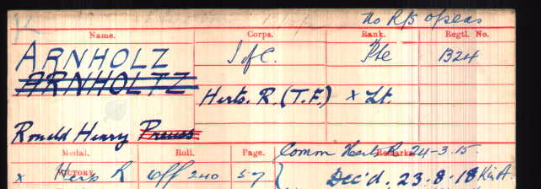 No R/S o'seas
Name. Corps. Rank. Regtl. No.
ARNHOLZ I of C. Pte 1324
ARNHOLTZ
Herts. R. (T.F.) x Lt.
Ronald Henry Preuss
Medal. Roll. Page. Comm Herts R 24-3-15. Remarks.
x VICTORY Herts R Off 240 57 Dec'd. 23.8.18 K in A